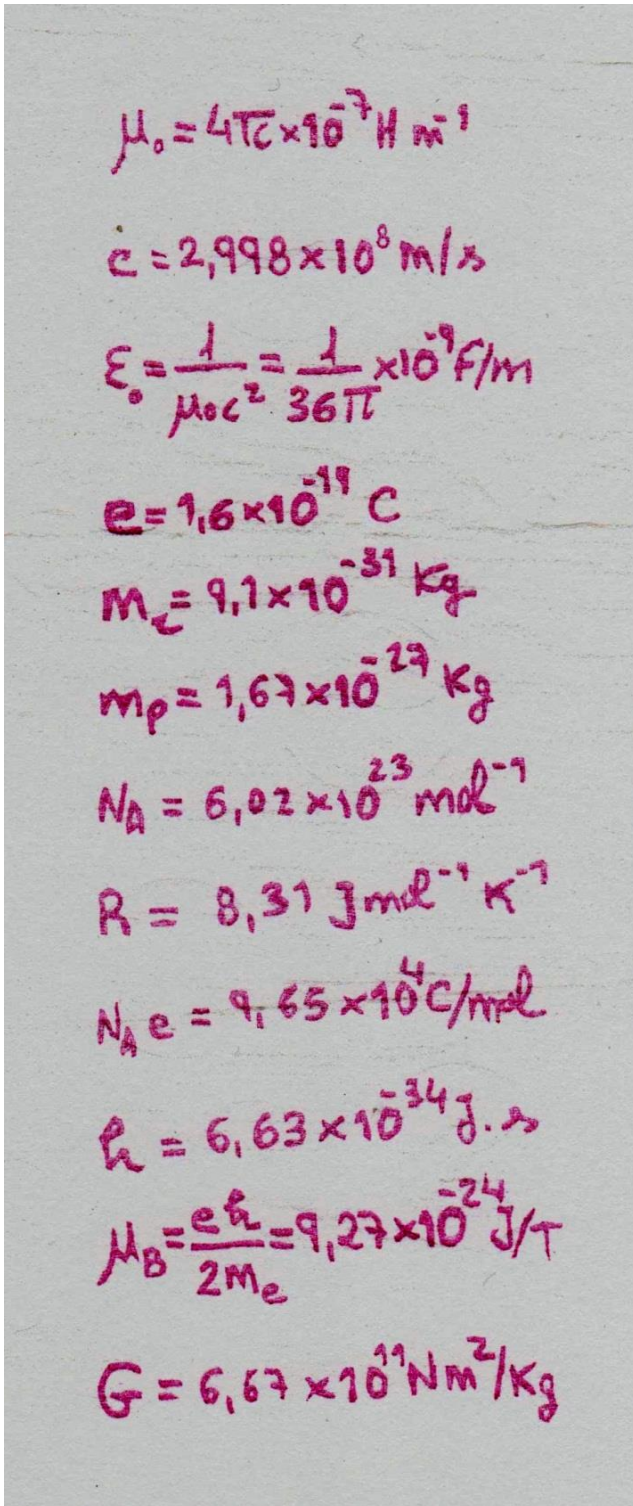 μ₀ = 4π×10⁻⁷ H m⁻¹
c = 2,998×10⁸ m/s
ε₀ = 1/μ₀c² = 1/36π ×10⁻⁹ F/m
e = 1,6×10⁻¹⁹ C
mₑ = 9,1×10⁻³¹ Kg
mₚ = 1,67×10⁻²⁷ Kg
N_A = 6,02×10²³ mol⁻¹
R = 8,31 J mol⁻¹ K⁻¹
N_A e = 9,65×10⁴ C/mol
h = 6,63×10⁻³⁴ J.s
μ_B = eħ/2mₑ = 9,27×10⁻²⁴ J/T
G = 6,67×10¹¹ Nm²/Kg